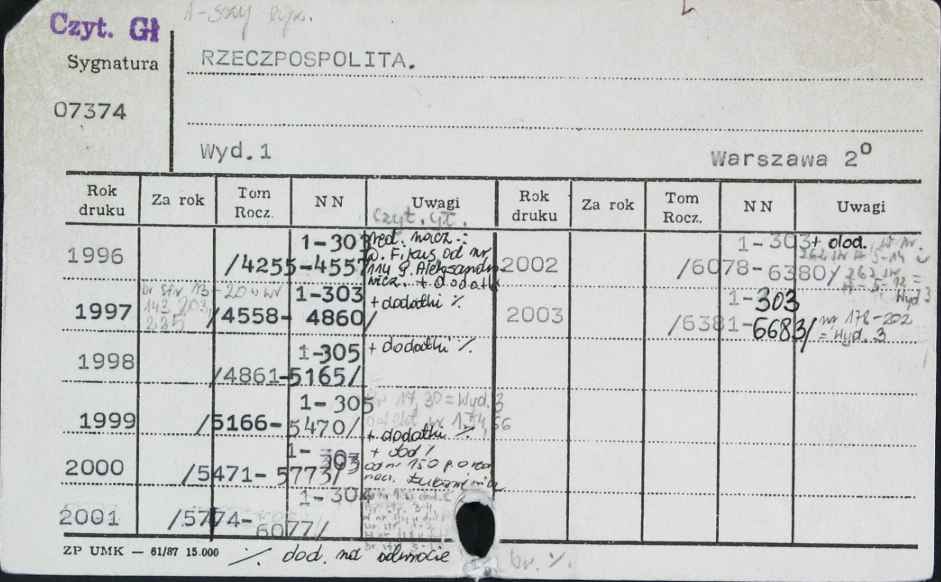 1-szy egz.
Czyt. Gł
Sygnatura
07374
RZECZPOSPOLITA.
Wyd.1
Warszawa 2º
Rok druku
Za rok
Tom Rocz.
NN
Uwagi
Rok druku
Za rok
Tom Rocz.
NN
Uwagi
Czyt. Gł.
1996 1-303 /4255-4557 red. nacz.:
W. Fijaus od nr
114 P. Aleksandro
wicz. + dodatki
1997 1-303 /4558-4860/ + dodatki ٪
1998 1-305 /4861-5165/ + dodatki ٪
1999 1-305 /5166-5470/ nr 17, 30 = Wyd. 3
+ dodatki ٪
2000 1-303 /5471-5773/ + dod /
od nr 150 p.o. red
nacz.
2001 1-304 /5774-6077/
2002 1-303 /6078-6380/ + dod.
2003 1-303 /6381-6683/ nr 178-202
= Wyd. 3
ZP UMK — 61/87 15.000
٪ dod. na odwrocie